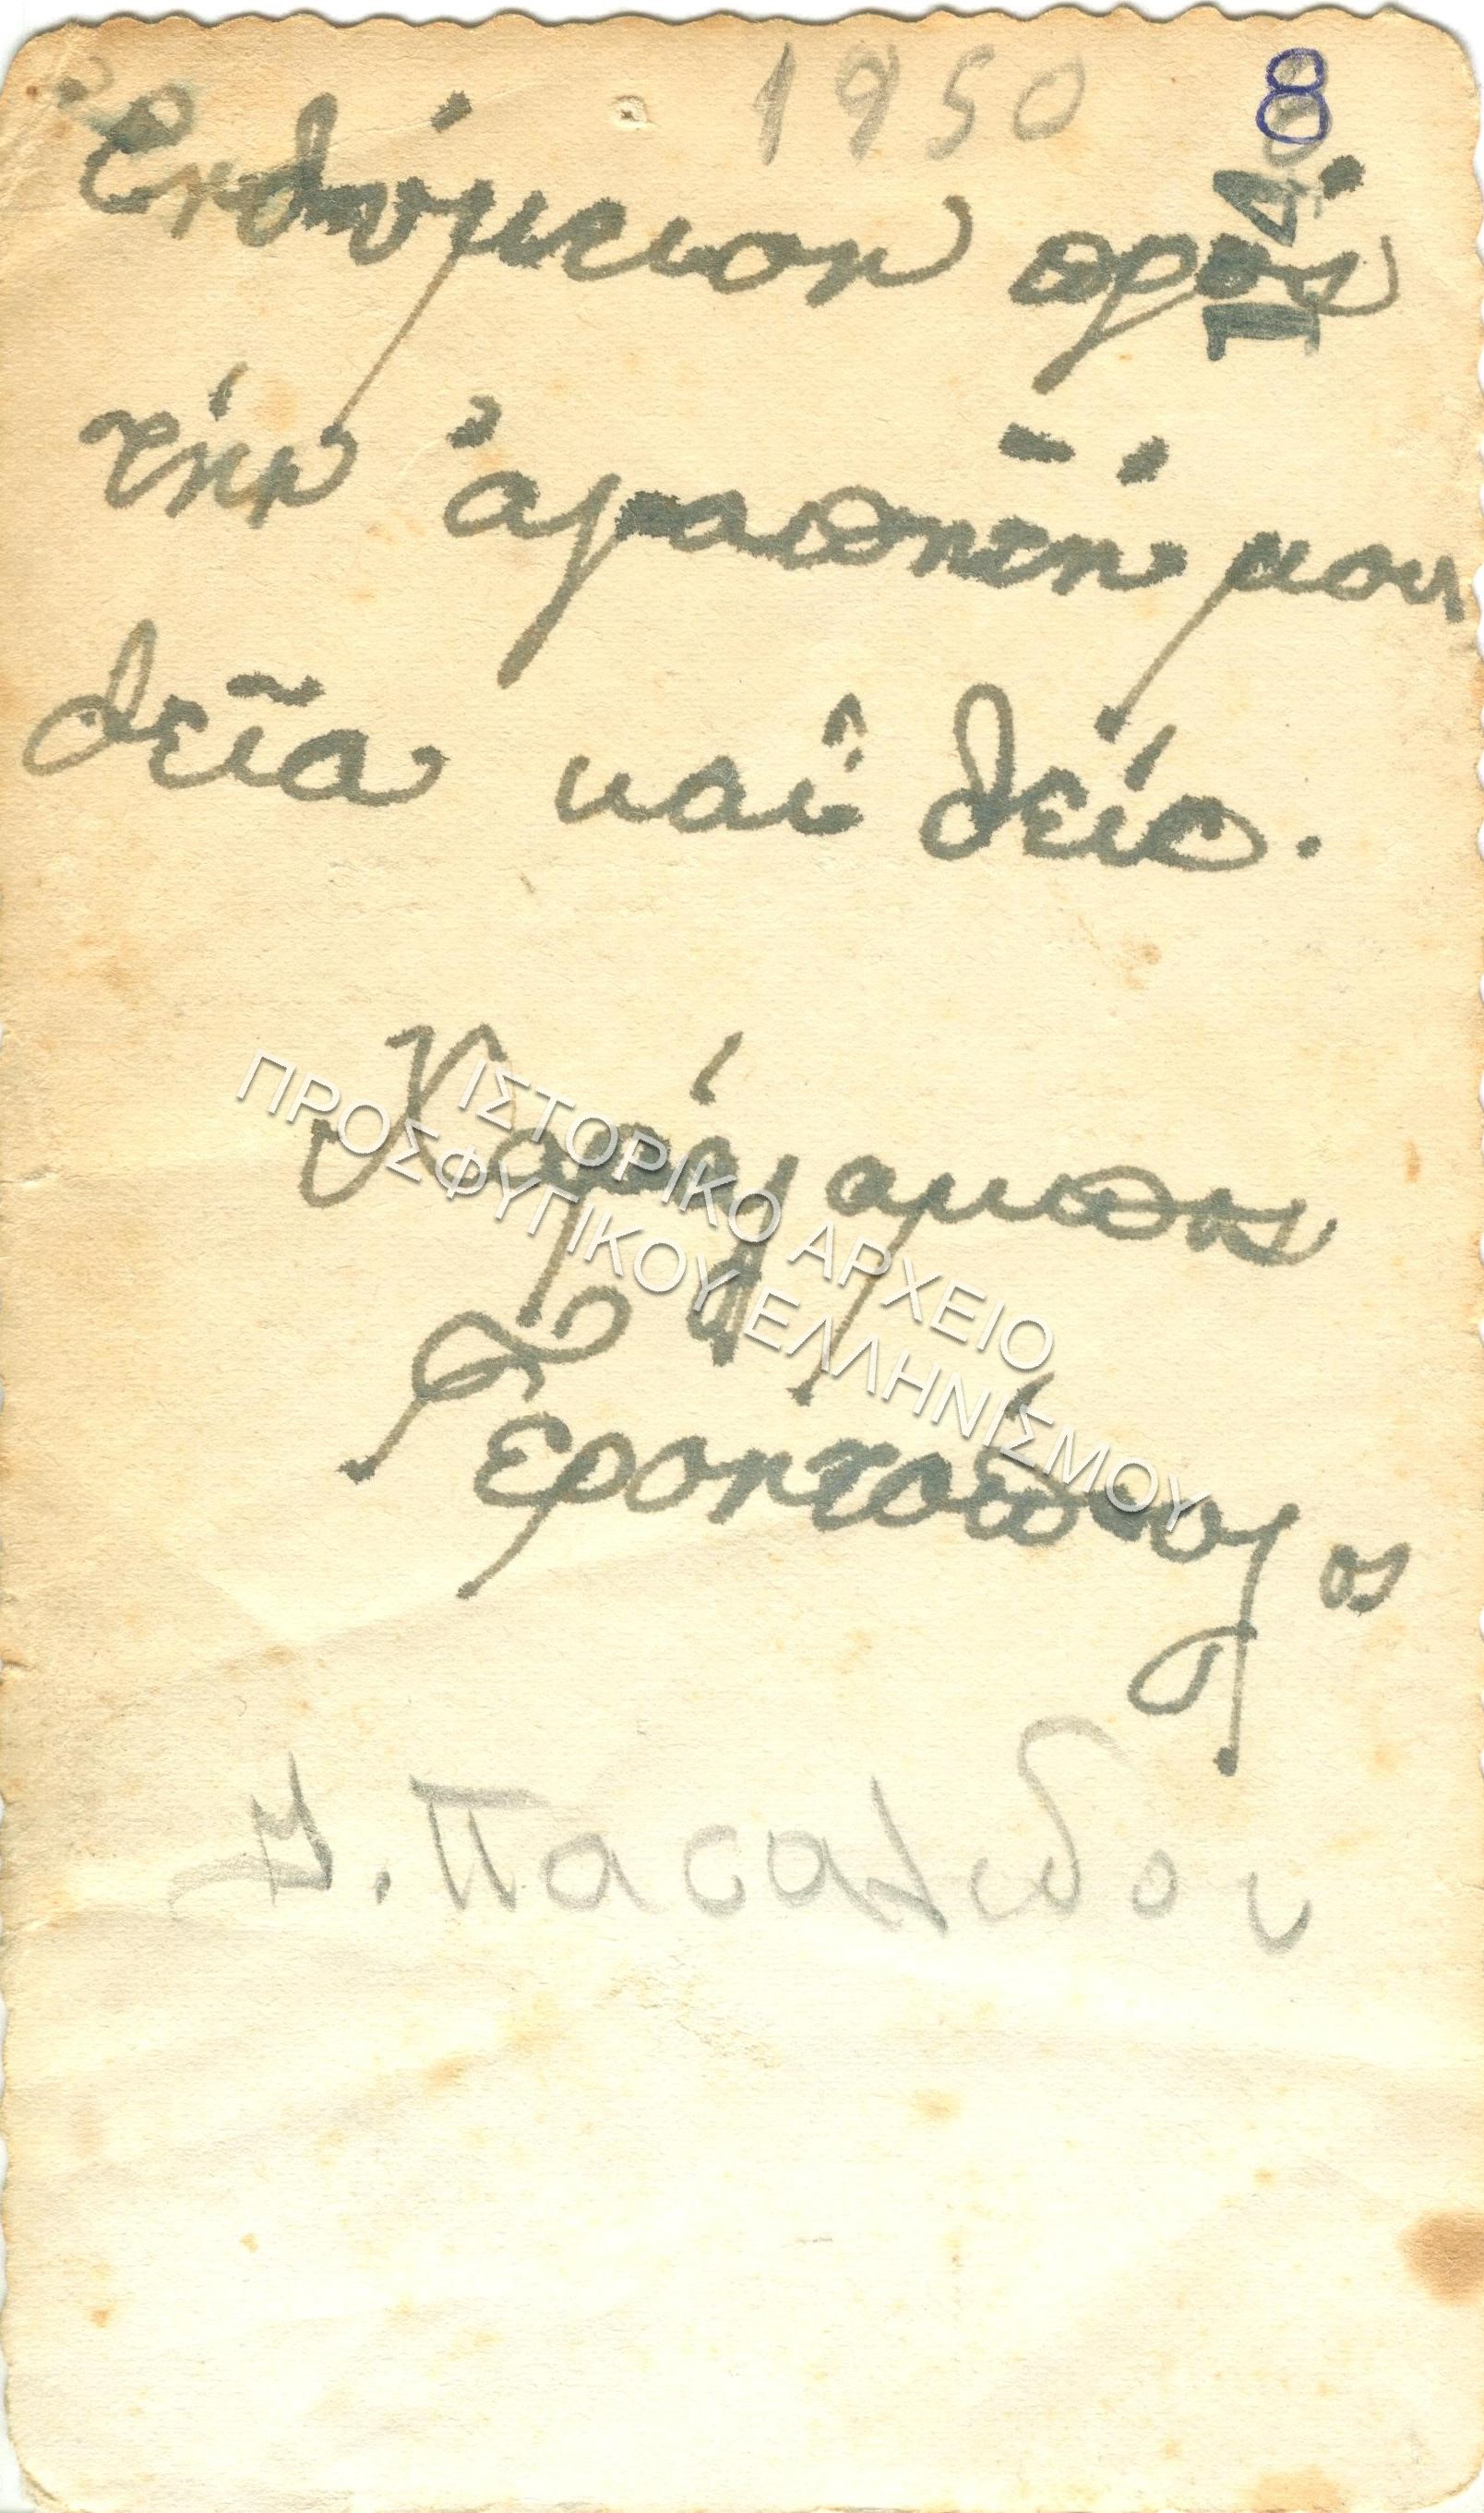 1950 8
Ἐνθύμειον πρός
14
τήν ἀγαπητή μου
θεῖα καί θείο.
Χαράλαμπος
Γεροντόπουλος
Ι. Πασαλιδου
ΙΣΤΟΡΙΚΟ ΑΡΧΕΙΟ
ΠΡΟΣΦΥΓΙΚΟΥ ΕΛΛΗΝΙΣΜΟΥ